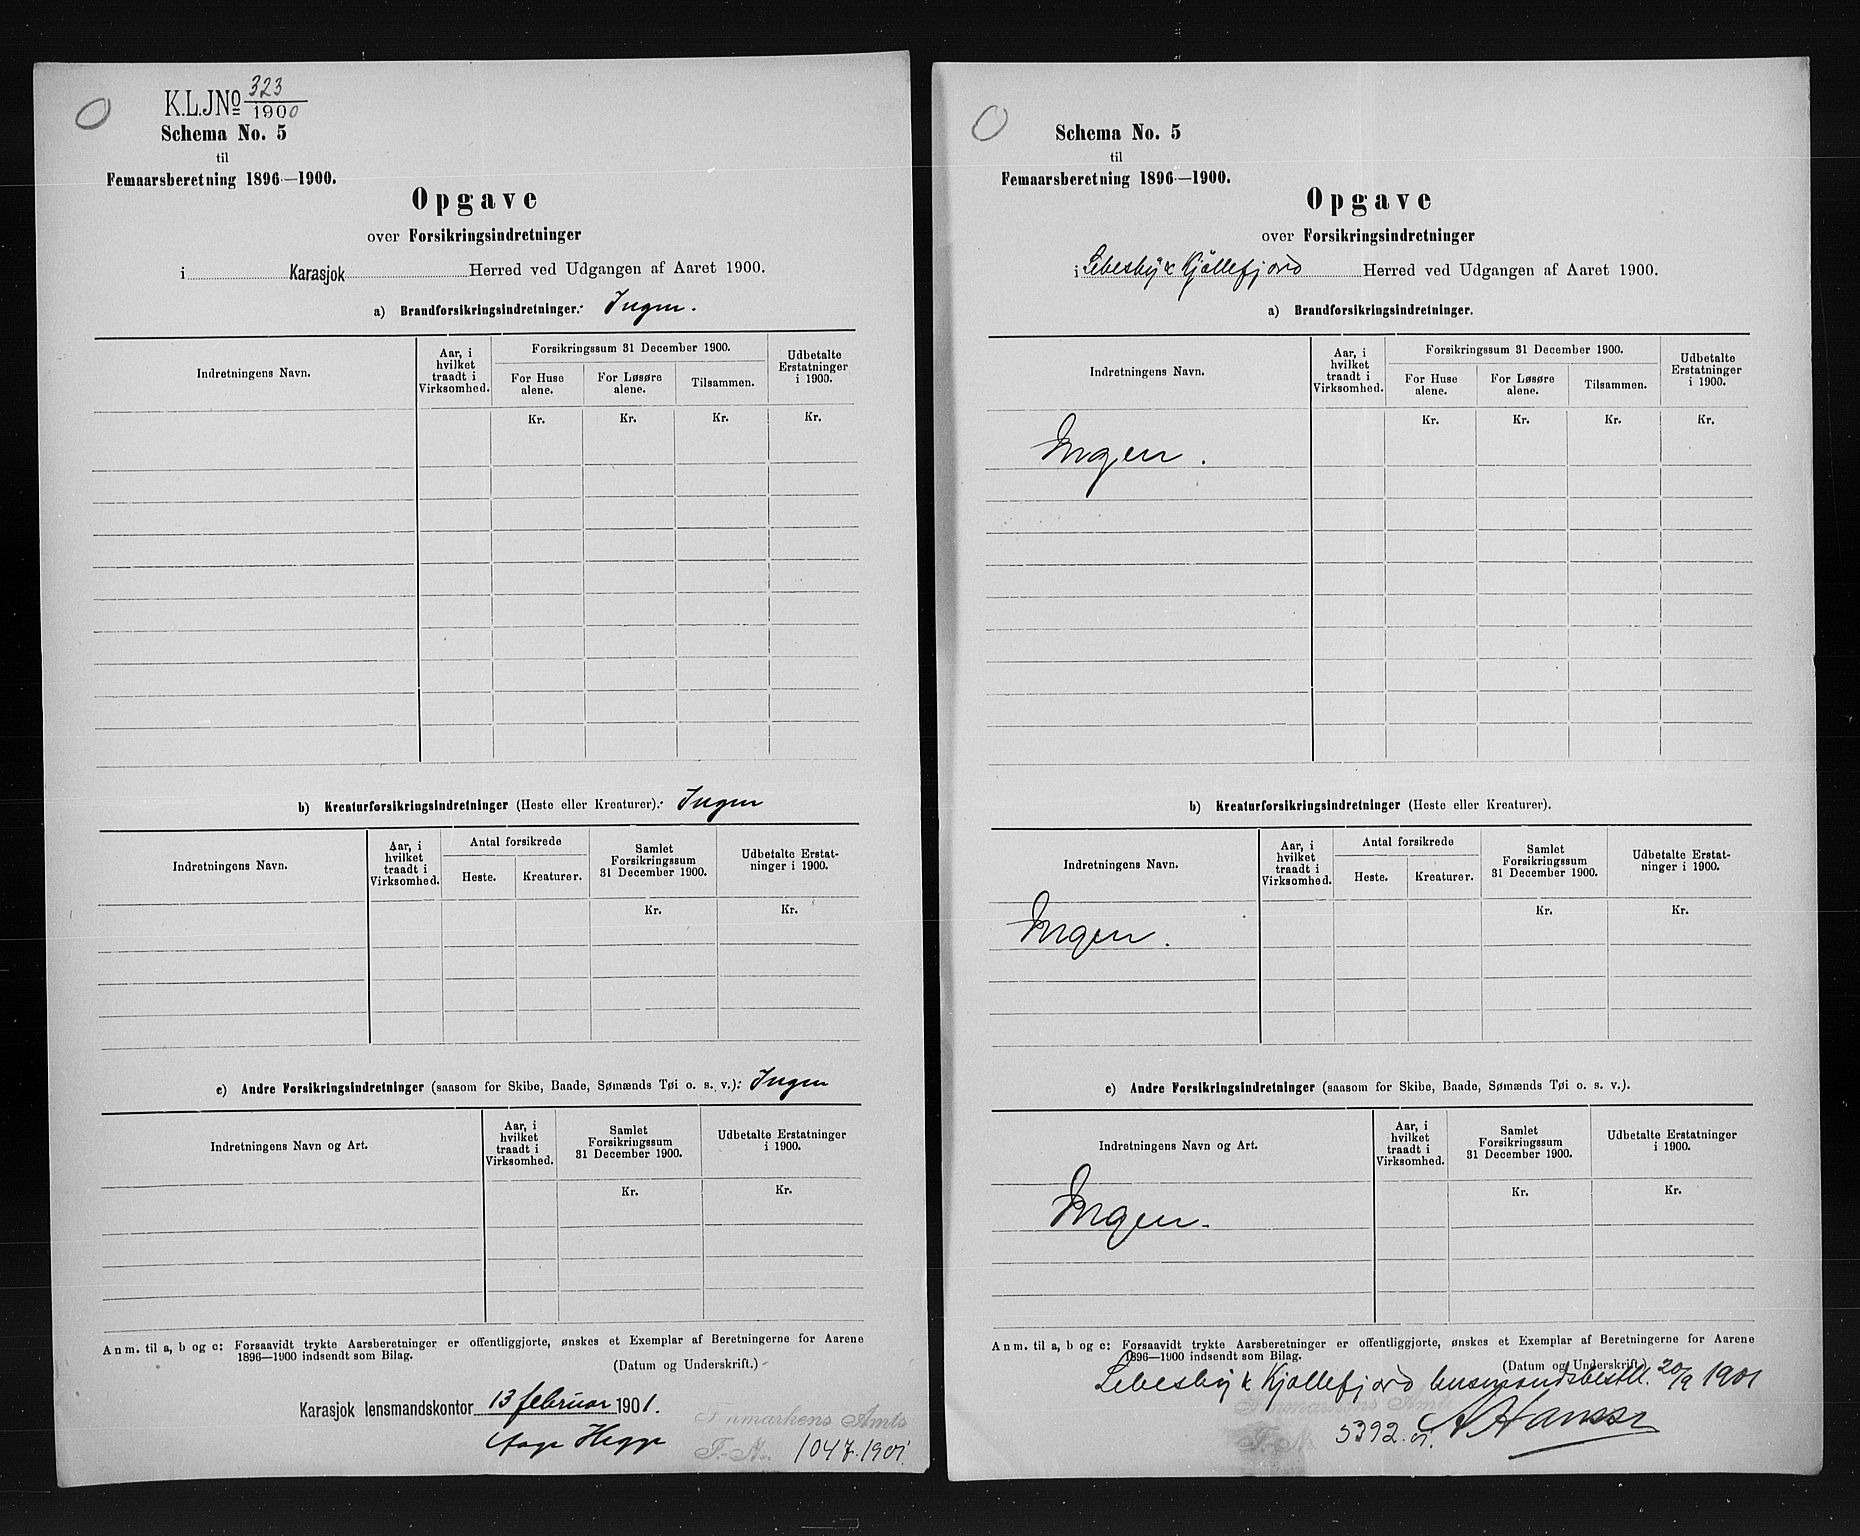 K.L.JNo 323
1900
Schema No. 5
til
Femaarsberetning 1896—1900.
Opgave
over Forsikringsindretninger
i Karasjok Herred ved Udgangen af Aaret 1900.
a) Brandforsikringsindretninger: Ingen.
Indretningens Navn.
Aar, i
hvilket
traadt i
Virksomhed.
Forsikringssum 31 December 1900.
For Huse
alene.
For Løsøre
alene.
Tilsammen.
Udbetalte
Erstatninger
i 1900.
Kr. Kr. Kr. Kr.
b) Kreaturforsikringsindretninger (Heste eller Kreaturer): Ingen
Indretningens Navn.
Aar, i
hvilket
traadt i
Virksomhed.
Antal forsikrede
Heste. Kreaturer.
Samlet
Forsikringssum
31 December 1900.
Udbetalte Erstat-
ninger i 1900.
Kr. Kr.
c) Andre Forsikringsindretninger (saasom for Skibe, Baade, Sømænds Tøi o. s. v.): Ingen
Indretningens Navn og Art.
Aar, i
hvilket
traadt i
Virksomhed.
Samlet
Forsikringssum
31 December 1900.
Udbetalte Erstatninger
i 1900.
Kr. Kr.
Anm. til a, b og c: Forsaavidt trykte Aarsberetninger er offentliggjorte, ønskes et Exemplar af Beretningerne for Aarene
1896—1900 indsendt som Bilag.
(Datum og Underskrift.)
Karasjok lensmandskontor 13 februar 1901.
Aage Hegge
Finmarkens Amts
J.-N. 1047.1901
Schema No. 5
til
Femaarsberetning 1896—1900.
Opgave
over Forsikringsindretninger
i Lebesby & Kjøllefjord Herred ved Udgangen af Aaret 1900.
a) Brandforsikringsindretninger.
Indretningens Navn.
Aar, i
hvilket
traadt i
Virksomhed.
Forsikringssum 31 December 1900.
For Huse
alene.
For Løsøre
alene.
Tilsammen.
Udbetalte
Erstatninger
i 1900.
Kr. Kr. Kr. Kr.
Ingen.
b) Kreaturforsikringsindretninger (Heste eller Kreaturer).
Indretningens Navn.
Aar, i
hvilket
traadt i
Virksomhed.
Antal forsikrede
Heste. Kreaturer.
Samlet
Forsikringssum
31 December 1900.
Udbetalte Erstat-
ninger i 1900.
Kr. Kr.
Ingen.
c) Andre Forsikringsindretninger (saasom for Skibe, Baade, Sømænds Tøi o. s. v.).
Indretningens Navn og Art.
Aar, i
hvilket
traadt i
Virksomhed.
Samlet
Forsikringssum
31 December 1900.
Udbetalte Erstatninger
i 1900.
Kr. Kr.
Ingen.
Anm. til a, b og c: Forsaavidt trykte Aarsberetninger er offentliggjorte, ønskes et Exemplar af Beretningerne for Aarene
1896—1900 indsendt som Bilag.
(Datum og Underskrift.)
Lebesby & Kjøllefjord lensmandsbestil. 20/9 1901
A Hansen
Finmarkens Amts
J.-N. 5392.01.